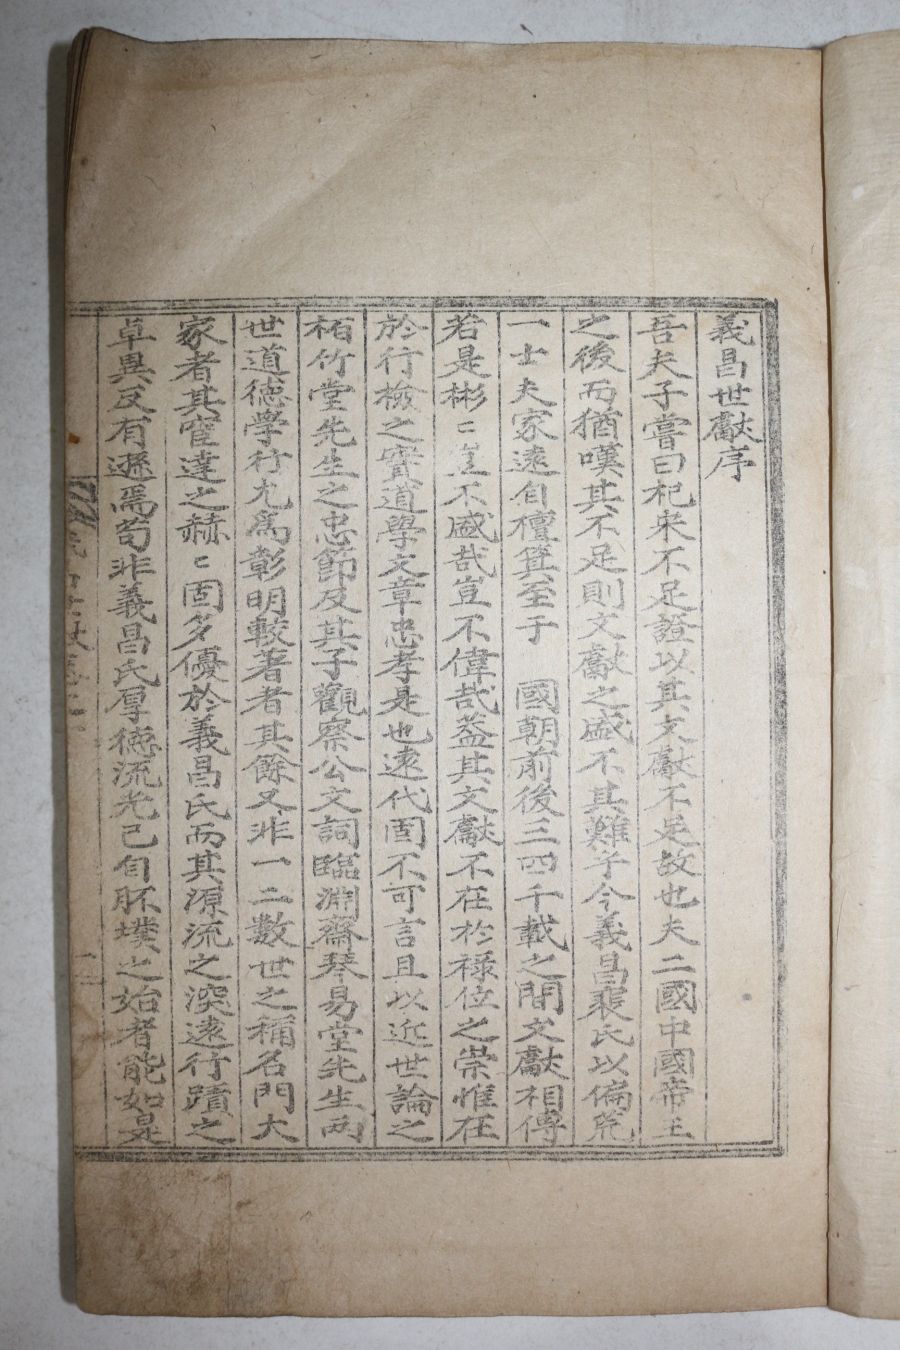 義昌世獻序
吾夫子嘗曰杞宋不足證以其文獻不足故也夫二國中國帝王
之後而猶嘆其不足則文獻之盛不其難乎今義昌裴氏以偏荒
一士夫家遠自檀箕至于 國朝前後三四千載之間文獻相傳
若是彬〻豈不盛哉豈不偉哉盖其文獻不在於祿位之崇惟在
於行檢之實道學文章忠孝是也遠代固不可言且以近世論之
栢竹堂先生之忠節及其子觀察公文詞臨淵齋琴易堂先生兩
世道德學行尤爲彰明較著者其餘又非一二數世之稱名門大
家者其窅達之赫〻固多優於義昌氏而其源流之深遠行蹟之
卓異反有遜焉苟非義昌氏厚德流光已自胚墣之始者能如是